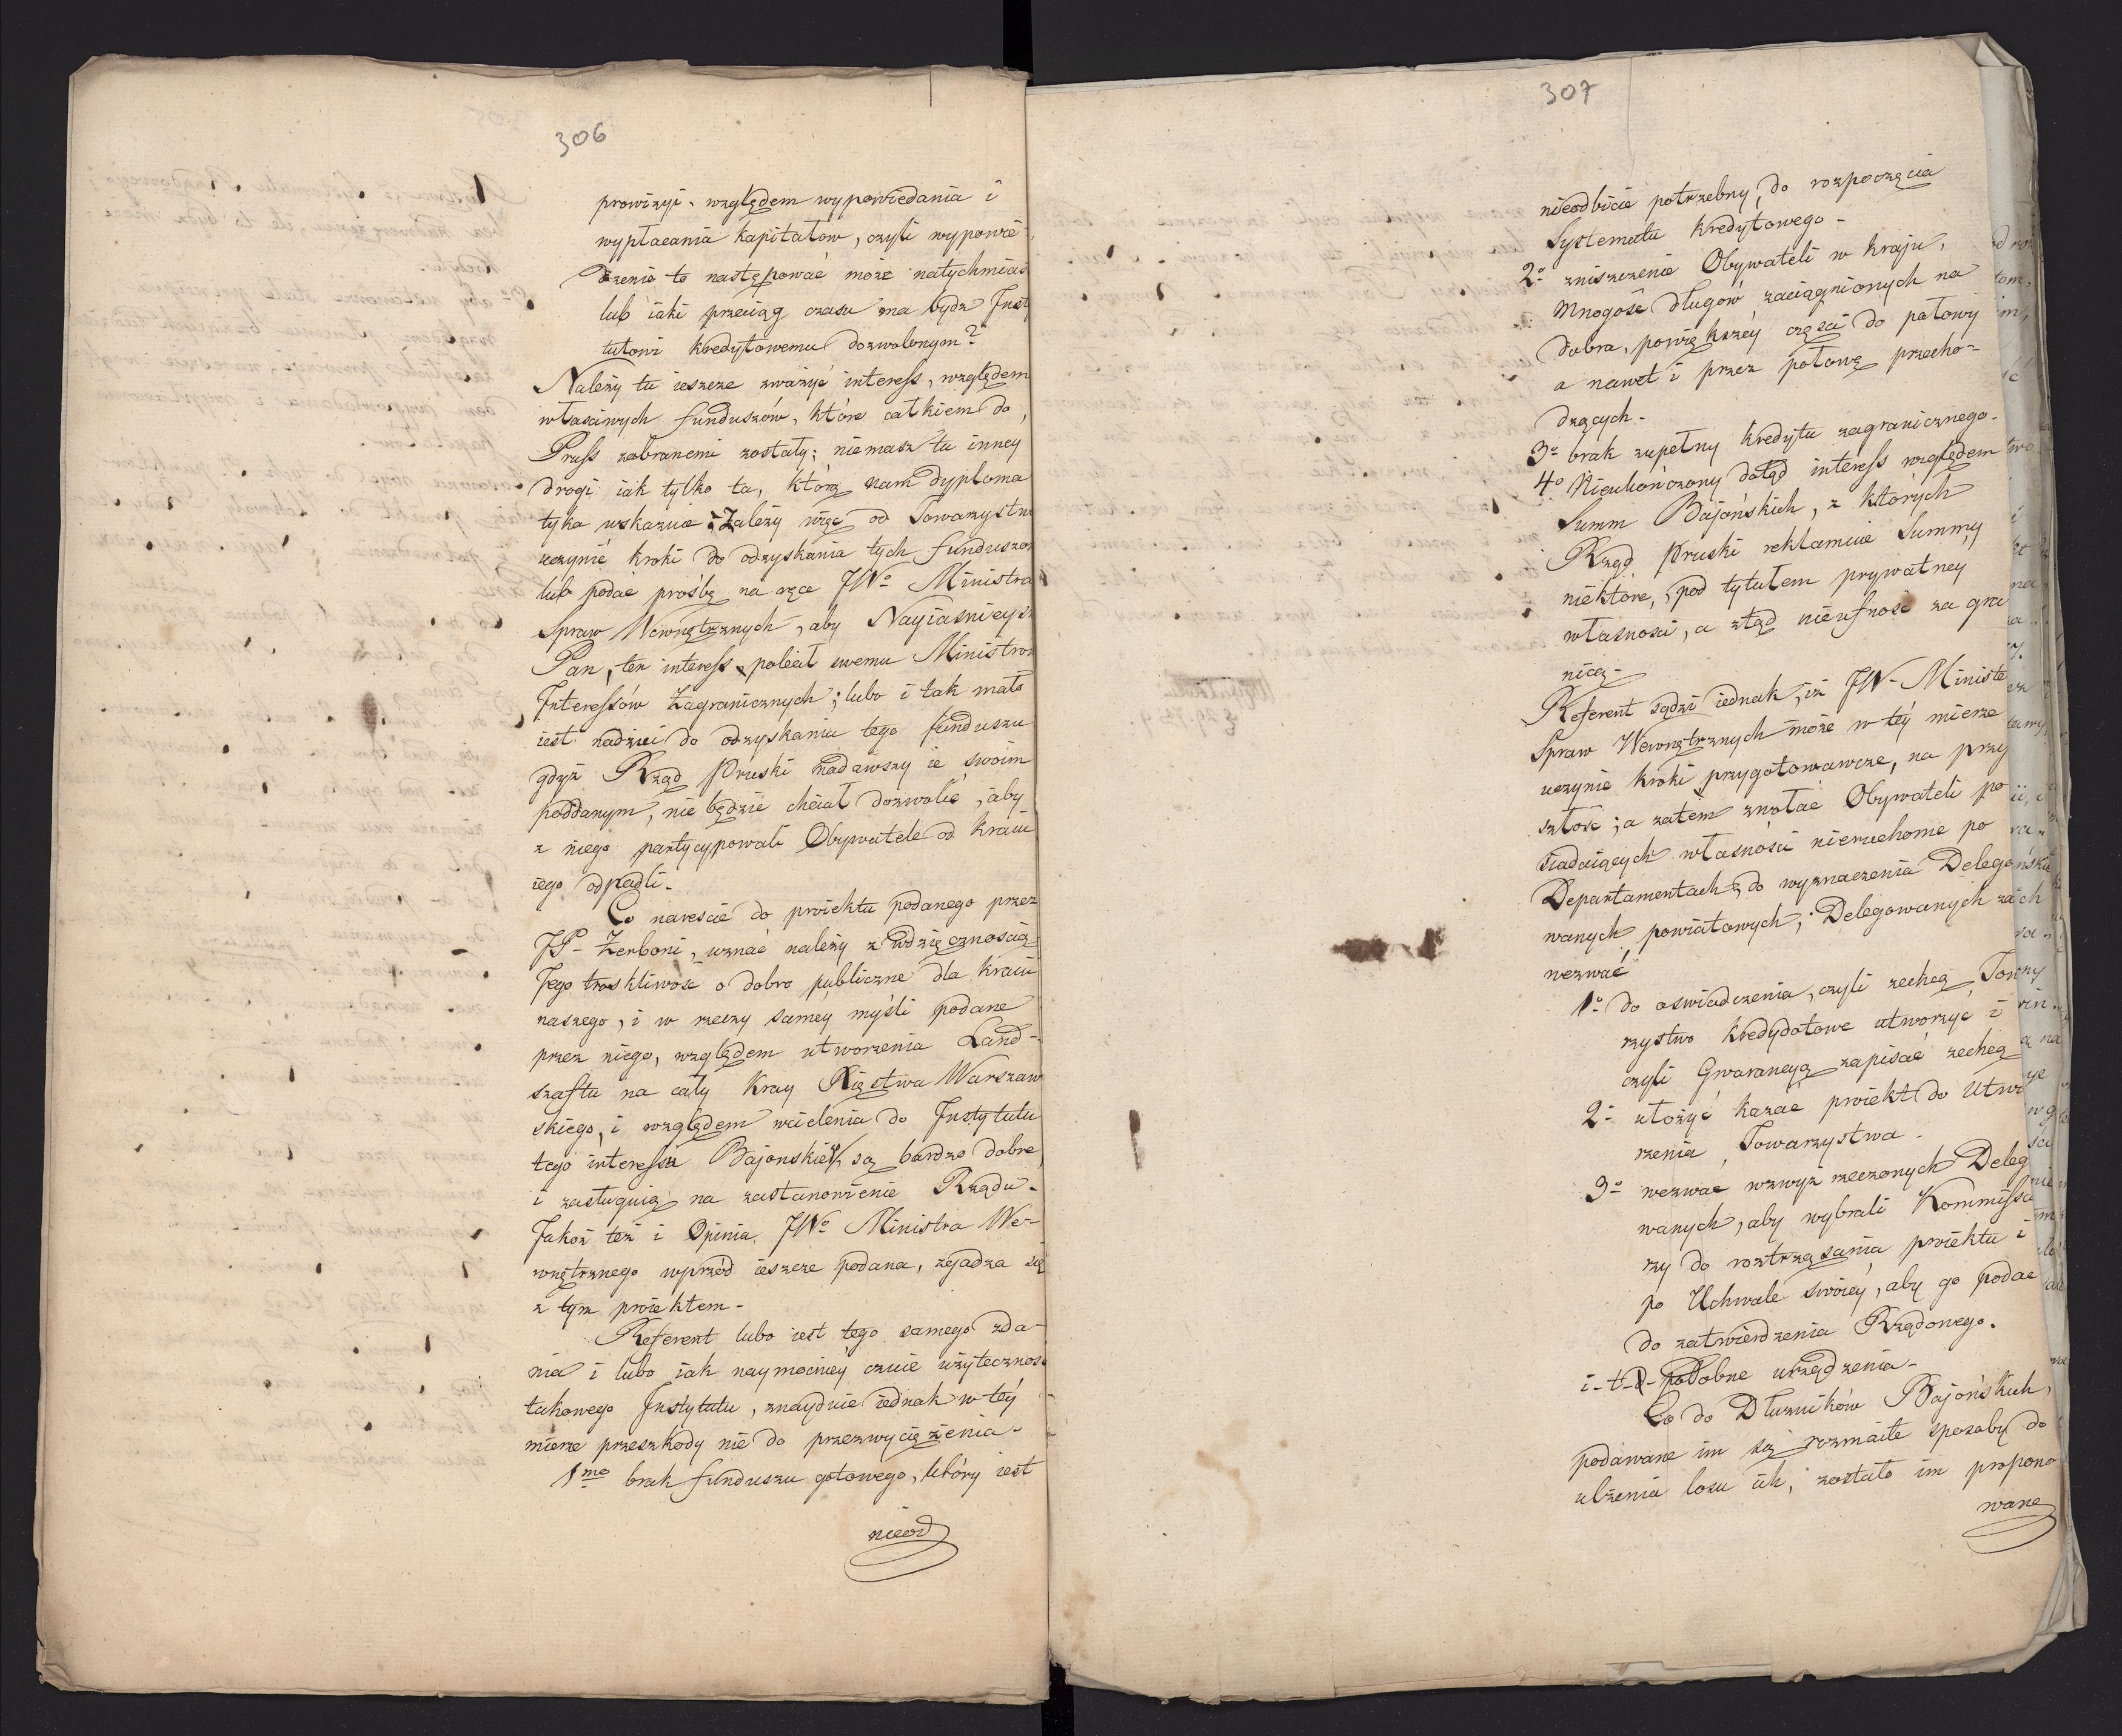 306
prowizyi, względem wypowiedania i
wypłacania kapitałow, czyli wypowie-
dzenie to następować może natychmias
lub iaki przeciąg czasu ma bydz Inst
tutowi kredytowemu dozwolonym?
Należy tu ieszcze zważyć interess, względem
własciwych funduszów, które całkiem do
Pruss zabranemi zostały; niemasz tu inney
drogi iak tylko ta, którą nam dyploma
tyka wskazuie; Zależy więc od Towarzystw
uczynić kroki do odzyskania tych funduszow
lub podać prośbę na ręce JWo Ministra
Spraw Wewnętrznych, aby Nayiasnieysz
Pan, ten interess polecił swemu Ministrow
Interessów Zagranicznych; lubo i tak mało
iest nadziei do odzyskania tego funduszu
gdyż Rząd Pruski nadawszy ie swoim
poddanym, nie będzie chciał dozwolić, aby
z niego partycypowali Obywatele od kraiu
iego odpadli.
Co nareście do proiektu podanego przez
JP- Zerboni, uznać należy z wdzięcznoscią
Jego troskliwość o dobro publiczne dla kraiu
naszego, i w rzeczy samey myśli podane
przez niego, względem utworzenia Land-
szaftu na cały Kray Xięstwa Warszaw
skiego, i względem wcielenia do Instytutu
tego interessu Bajonskie, są bardzo dobre
i zasługuią na zastanowienie Rządu-
Jakoż też i Opinia JWo Ministra We-
wnętrznego wprzód ieszcze podana, zgadza się
z tym proiektem-
Referent lubo iest tego samego zda-
nia i lubo iak naymocniey czuie użytecznosc
takowego Instytutu, znayduie iednak w tey
mierze przeszkody nie do przezwyciężenia-
1mo brak funduszu gotowego, który iest
nieod
307
nieodbicie potrzebny, do rozpoczęcia
Systematu Kredytowego-
2o zniszczenie Obywateli w kraju,
mnogość długów zaciągnionych na
dobra, powiększey częsci do połowy
a nawet i przez połowę przecho-
dzących-
3o brak zupełny kredytu zagranicznego-
4o Nieukończony dotąd interess względem
Summ Bajońskich, z których
Rząd Pruski reklamuie Summy
niektóre, pod tytułem prywatney
własnosci, a ztąd nieufność za gra
nicą-
Referent sądzi iednak, iż JW- Ministe
Spraw Wewnętrznych może w tey mierze
uczynić kroki przygotowawcze, na przy
szłosc; a zatem zwołać Obywateli po
siadaiących własności nieruchome po
Departamentach, do wyznaczenia Delego
wanych powiatowych; Delegowanych zaś
wezwać
1o do oswiadczenia, czyli zechcą Tow
rzystwo kredydotowe utworzyć i
czyli Gwarancyą zapisać zechcą
2o ułożyć kazać proiekt do Utwo
rzenia Towarzystwa-
3o wezwać wzwyż rzeczonych Deleg
wanych, aby wybrali Kommissa
rzy do roztrząsania proiektu i
po Uchwale swoiey, aby go podać
do zatwierdzenia Rządowego.
i-t-d- podobne urządzenia-
Co do Dłużników Bajońskich,
podawane im są rozmaite sposoby do
ulżenia losu ich; zostało im propono
wane